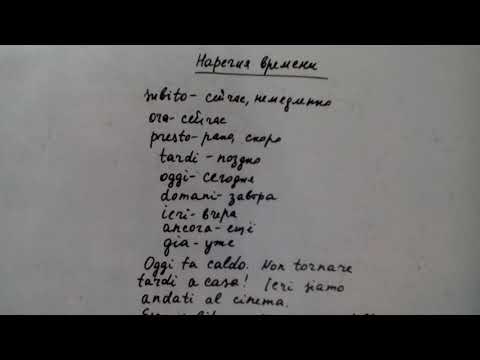 Наречия времени
subito - сейчас, немедленно
ora - сейчас
presto - рано, скоро
tardi - поздно
oggi - сегодня
domani - завтра
ieri - вчера
ancora - ещё
già - уже
Oggi fa caldo. Non tornare
tardi a casa! Ieri siamo
andati al cinema.